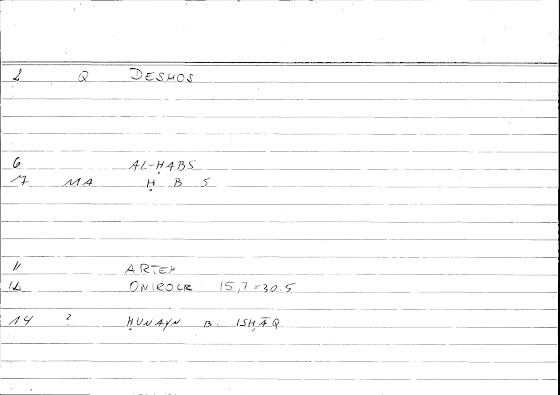 2 Q DESMOS
6 AL-ḤABS
7 MA Ḥ B S
11 ARTEM
12 ONIROCR 15,7 = 30.5
14 ? ḤUNAYN B. ISḤĀQ